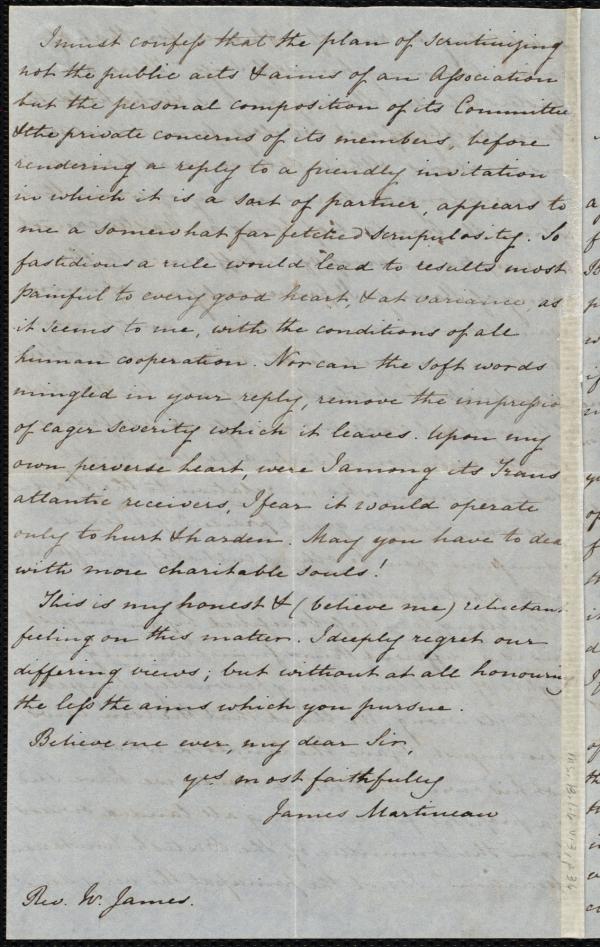 I must confess that the plan of scrutinizing
not the public acts & aims of an Association
but the personal composition of its Committee
& the private concerns of its members, before
rendering a reply to a friendly invitation
in which it is a sort of partner, appears to
me a somewhat far fetched scrupulosity. So
fastidious a rule would lead to results most
painful to every good heart, & at variance, as
it seems to me, with the conditions of all
human cooperation. Nor can the soft words
mingled in your reply, remove the impressio
of eager severity which it leaves. Upon my
own perverse heart, were I among its Trans
atlantic receivers, I fear it would operate
only to hurt & harden. May you have to dea
with more charitable souls!
This is my honest & (believe me) reluctant
feeling on this matter. I deeply regret our
differing views; but without at all honouring
the less the aims which you pursue.
Believe me ever, my dear Sir,
yrs most faithfully
James Martineau
Rev. W. James.